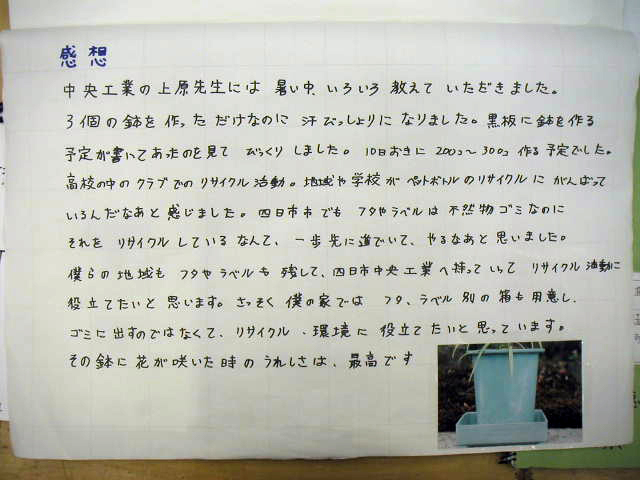 感想
中央工業の上原先生には 暑い中、いろいろ 教えて いただきました。
3個の鉢を作っただけなのに 汗びっしょりになりました。黒板に鉢を作る
予定が書いてあったのを見て びっくり しました。10日おきに 200コ〜300コ 作る予定でした。
高校の中の クラブでの リサイクル活動。地域や学校が ペットボトルのリサイクルに がんばって
いるんだなあと 感じました。四日市市でも フタやラベルは 不然物ゴミなのに
それを リサイクル しているなんて、一歩先に進でいて、やるなあと 思いました。
僕らの 地域も フタやラベルも 残して、四日市中央工業へ持っていって リサイクル 活動に
役立てたいと 思います。さっそく 僕の家では フタ、ラベル 別の 箱も用意し、
ゴミに出すのではなくて、リサイクル、環境に 役立てたいと思っています。
その鉢に 花が咲いた時のうれしさは、最高です